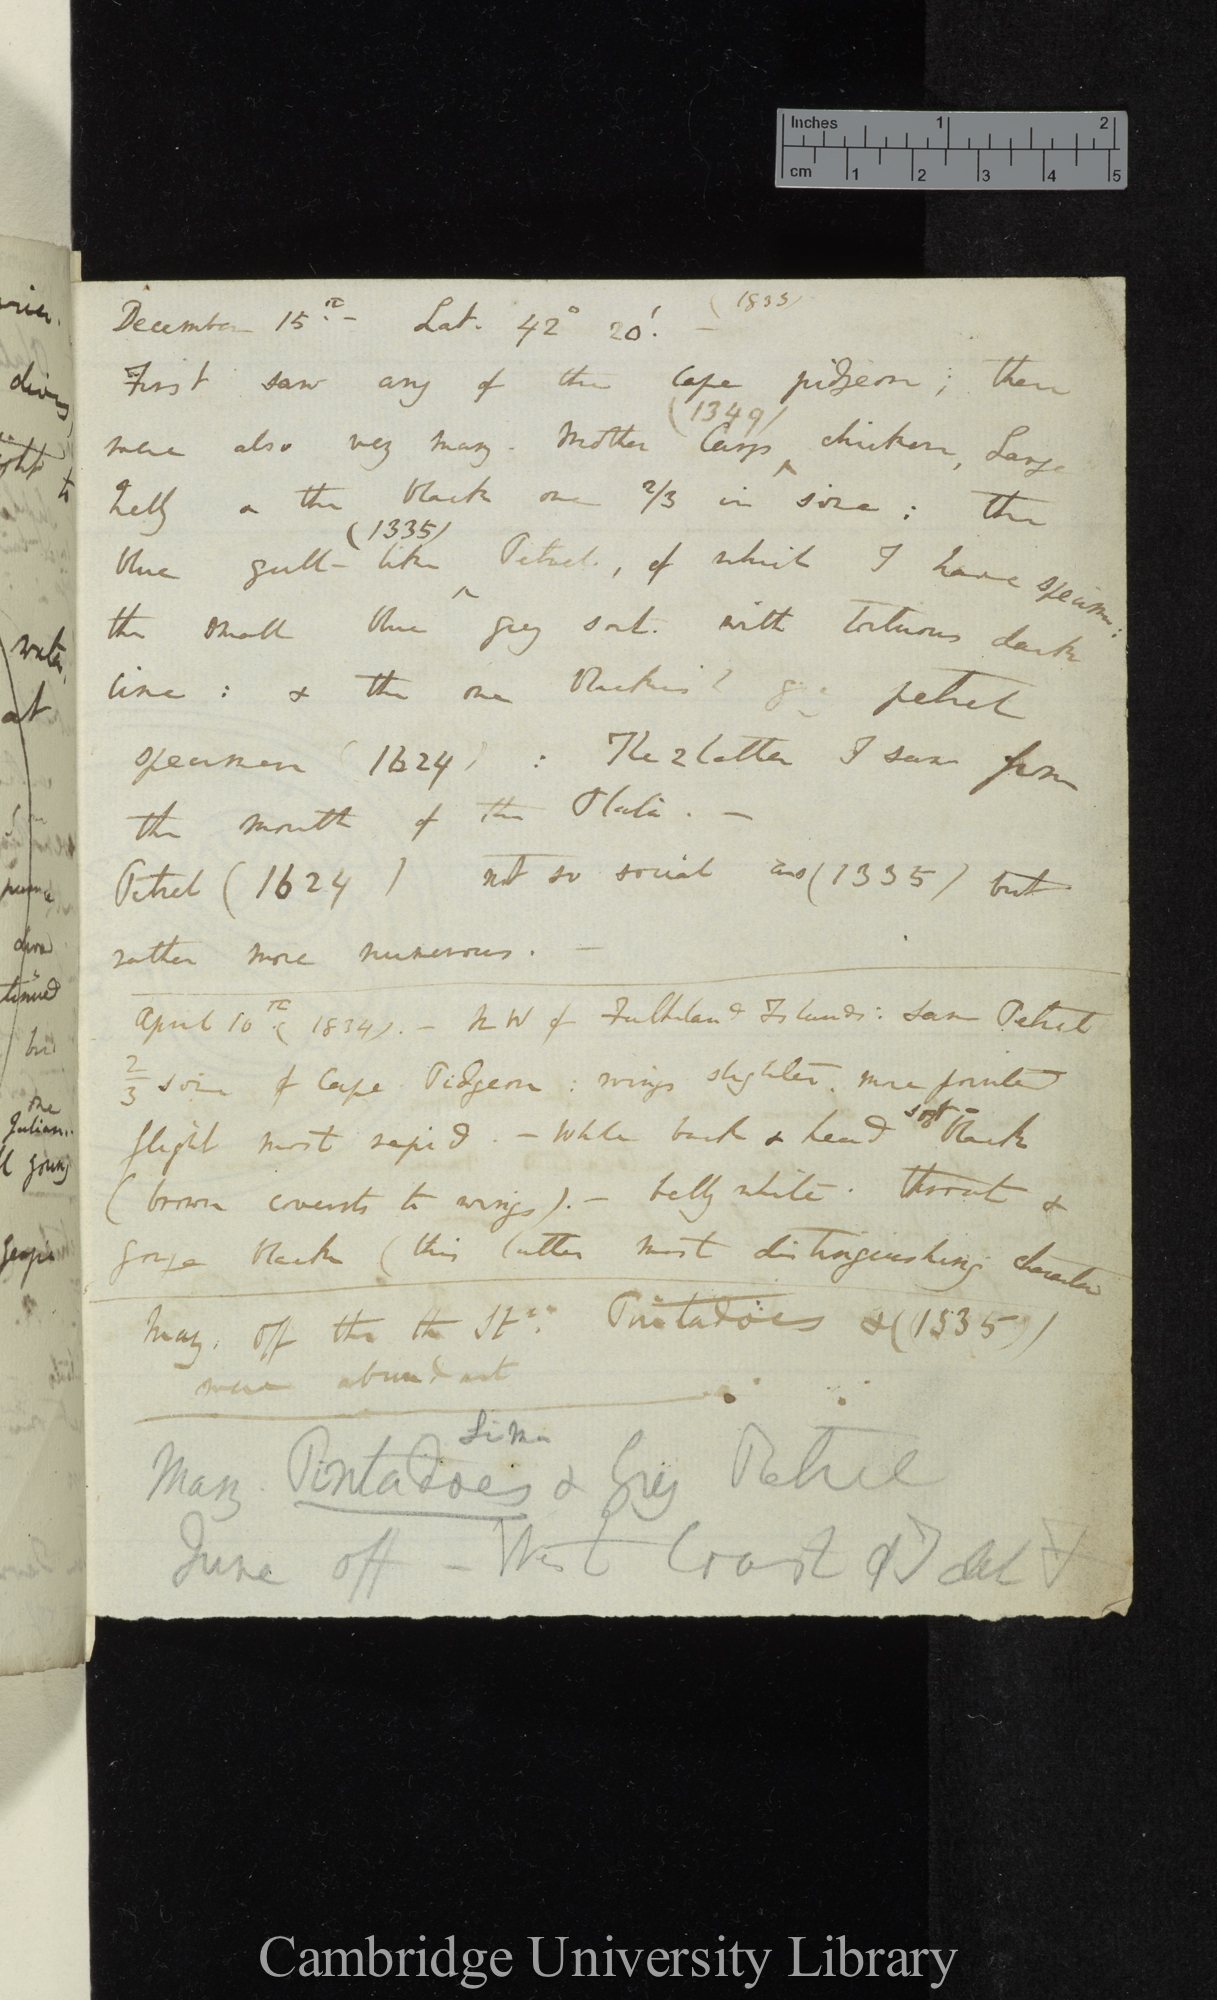 Inches 1 2
cm 1 2 3 4 5
December 15th.- Lat. 42° 20'. - (1833)
First saw any of the Cape pidgeon; there
were also very many. Mother Carys (1349) chicken, Large
Nelly & the black one 2/3 in size: the
blue gull-like (1335) Petrel, of which I have specimen:
the small blue grey sort. with tortuous dark
line: & the one blackish grey petrel
specimen (1624): The 2 latter I saw from
the mouth of the Plata. -
Petrel (1624) not so social as (1335) but
rather more numerous. -
April 10th (1834). - NW of Falkland Islands: saw Petrel
2/3 size of Cape Pidgeon: wings slighter, more pointed
flight most rapid. - While back & head soot-black
(brown coverts to wings). - belly white. throat &
gorge black (this latter most distinguishing character
May. off the the St. Pintadoes & (1335)
were abundant
Lima
Many Pintadoes & Grey Petrel
June off - West Coast of T del F
water,
at
one
Julian.
young
Cambridge University Library